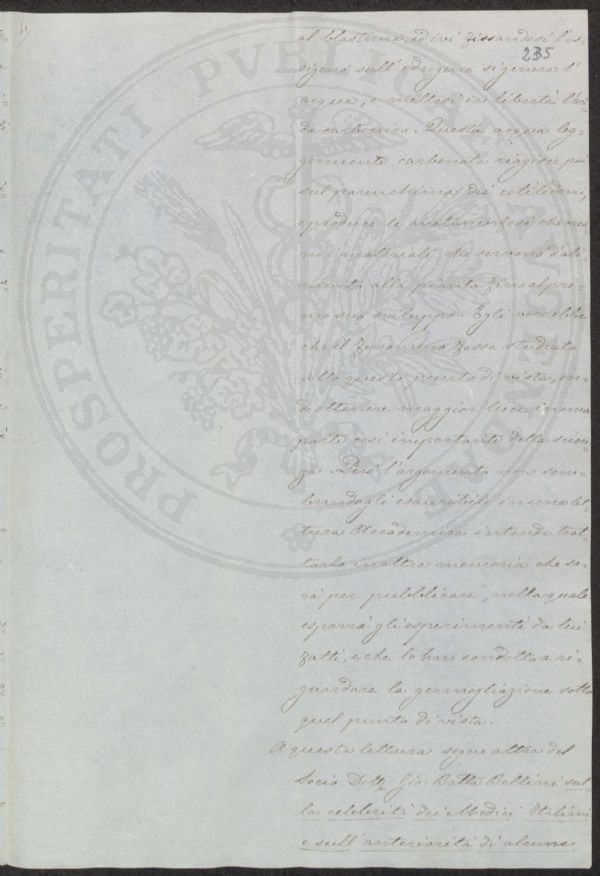 235
al blastema, ed ivi fissandosi l'os-
sigeno sull'idrogeno si genera l'
acqua, e mettesi in libertà l'aci-
do carbonico. Questa acqua leg-
germente carbonata reagisce poi
sul parenchima dei cotiledoni,
e produce le metamorfosi che
no i materiali, che servono d'ali-
mento alla pianta fino al pri-
mo suo sviluppo. Egli vorrebbe
che il fenomeno fosse studiato
sotto questo punto di vista, on-
de ottenere maggior luce in una
parte così importante della scien-
za. Però l'argomento non sem-
brandogli esauribile in una let-
tura Accademica intende trat-
tarlo in altra memoria che sa-
rà per pubblicare, nella quale
esporrà gli esperimenti da lui
fatti, e che lo han condotto a ri-
guardare la germogliazione sotto
quel punto di vista.
A questa lettura segue altra del
Socio Dott. Gio: Batta Bellini sul-
la celebrità dei Medici Italiani
e sull'anteriorità di alcune
PROSPERITATI PUBLICAE AUGENDAE